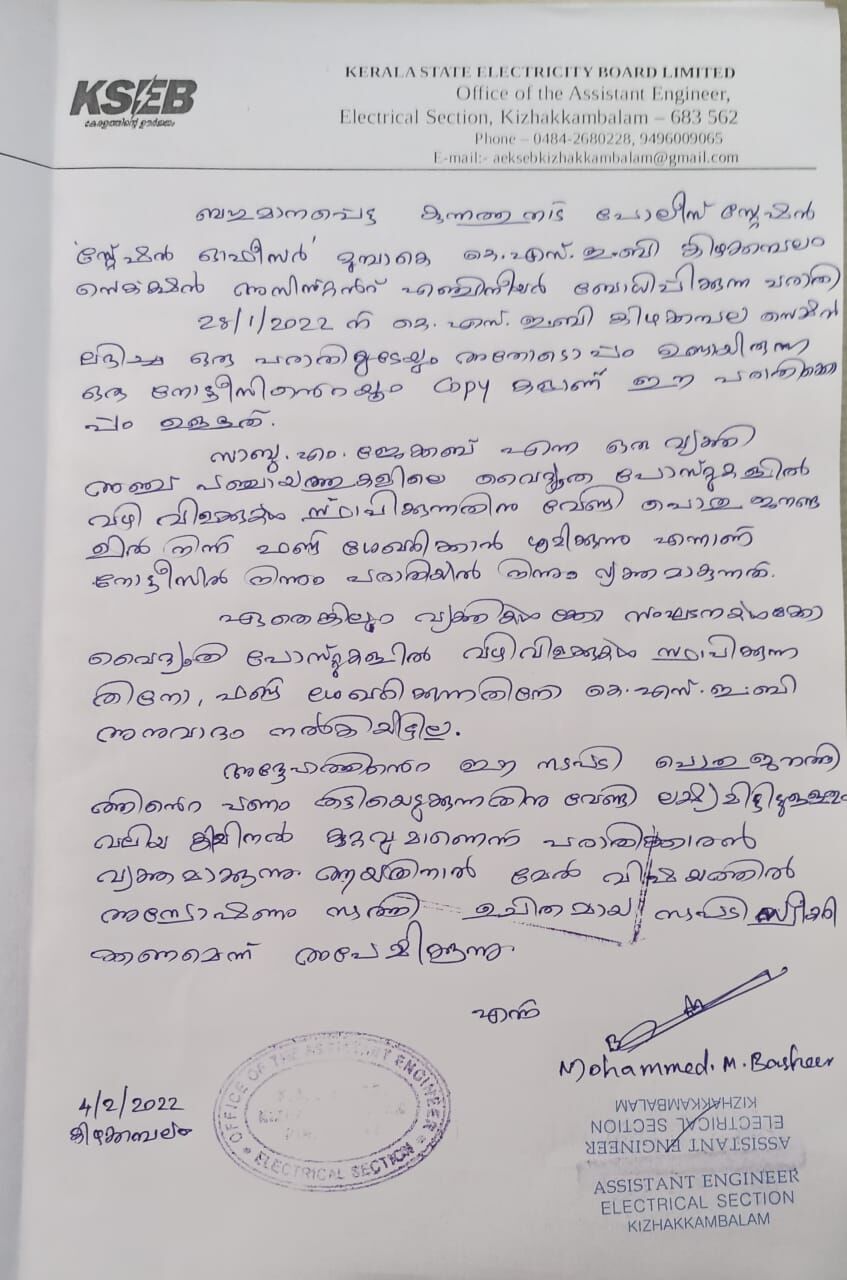 KSEB
കേരളത്തിന്റെ ഊർജ്ജം
KERALA STATE ELECTRICITY BOARD LIMITED
Office of the Assistant Engineer,
Electrical Section, Kizhakkambalam – 683 562
Phone – 0484-2680228, 9496009065
E-mail:- aeksebkizhakkambalam@gmail.com
ബഹുമാനപ്പെട്ട കുന്നത്തുനാട് പോലീസ് സ്റ്റേഷൻ
'സ്റ്റേഷൻ ഓഫീസർ' മുമ്പാകെ കെ.എസ്.ഇ.ബി കിഴക്കമ്പലം
സെക്ഷൻ അസിസ്റ്റൻറ് എഞ്ചിനീയർ ബോധിപ്പിക്കുന്ന പരാതി
28/1/2022 ന് കെ.എസ്.ഇ.ബി കിഴക്കമ്പലം സെക്ഷനിൽ
ലഭിച്ച ഒരു പരാതിയുടേയും അതോടൊപ്പം ഉണ്ടായിരുന്ന
ഒരു നോട്ടീസിൻെറയും Copy കളാണ് ഈ പരാതിക്കൊ
പ്പം ഉള്ളത്.
സാബു.എം.ജേക്കബ് എന്ന ഒരു വ്യക്തി
അഞ്ച് പഞ്ചായത്തുകളിലെ വൈദ്യുത പോസ്റ്റുകളിൽ
വഴി വിളക്കുകൾ സ്ഥാപിക്കുന്നതിനു വേണ്ടി പൊതു ജനങ്ങ
ളിൽ നിന്ന് ഫണ്ട് ശേഖരിക്കാൻ ശ്രമിക്കുന്നു എന്നാണ്
നോട്ടീസിൽ നിന്നും പരാതിയിൽ നിന്നും വ്യക്തമാകുന്നത്.
ഏതെങ്കിലും വ്യക്തികൾക്കോ സംഘടനകൾക്കോ
വൈദ്യുതി പോസ്റ്റുകളിൽ വഴിവിളക്കുകൾ സ്ഥാപിക്കുന്ന
തിനോ, ഫണ്ട് ശേഖരിക്കുന്നതിനോ കെ.എസ്.ഇ.ബി
അനുവാദം നൽകിയിട്ടില്ല.
അദ്ദേഹത്തിൻെറ ഈ നടപടി പൊതുജന
ത്തിൻെറ പണം തട്ടിയെടുക്കുന്നതിനു വേണ്ടി ലക്ഷ്യമിട്ടിട്ടുള്ള
വലിയ ക്രിമിനൽ കുറ്റവുമാണെന്ന് പരാതിക്കാരൻ
വ്യക്തമാക്കുന്നു. ആയതിനാൽ മേൽ വിഷയത്തിൽ
അന്വേഷണം നടത്തി ഉചിതമായ നടപടി സ്വീകരി
ക്കണമെന്ന് അപേക്ഷിക്കുന്നു.
എന്ന്
Mohammed. M. Basheer
4/2/2022
കിഴക്കമ്പലം
OFFICE OF THE ASSISTANT ENGINEER
ELECTRICAL SECTION
ASSISTANT ENGINEER
ELECTRICAL SECTION
KIZHAKKAMBALAM
ASSISTANT ENGINEER
ELECTRICAL SECTION
KIZHAKKAMBALAM